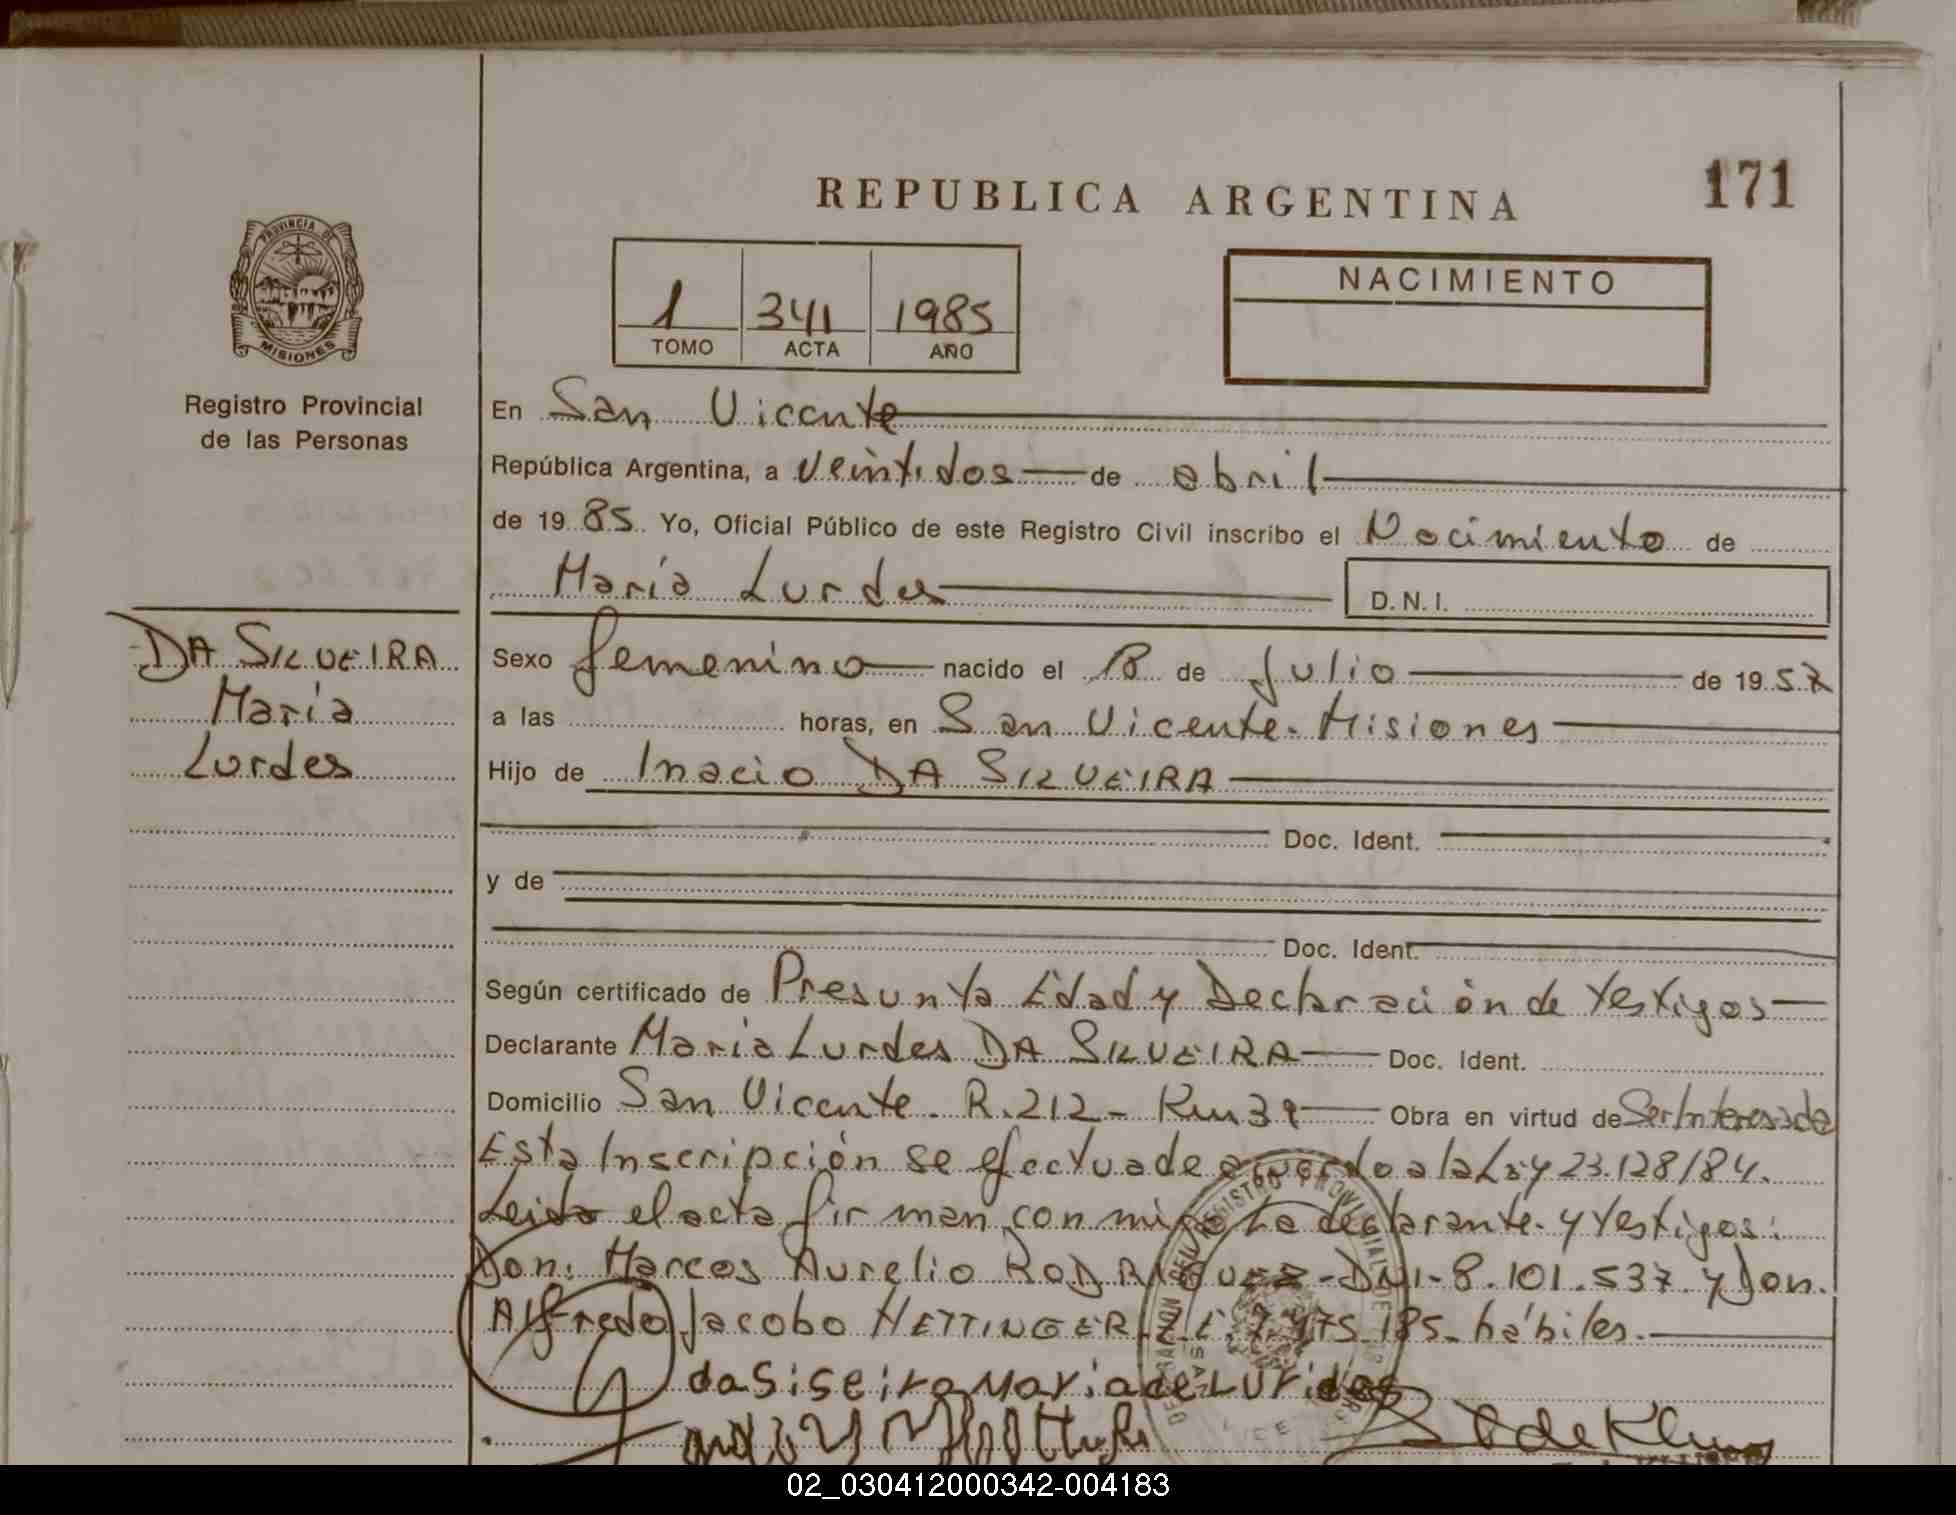 171
REPUBLICA ARGENTINA
PROVINCIA DE
MISIONES
Registro Provincial
de las Personas
1 341 1985
TOMO ACTA AÑO
NACIMIENTO
En San Vicente
República Argentina, a veintidos de abril
de 1985 Yo, Oficial Público de este Registro Civil inscribo el Nacimiento de
María Lurdes D.N.I.
DA SILVEIRA
María
Lurdes
Sexo femenino nacido el 18 de Julio de 1957
a las horas, en San Vicente. Misiones
Hijo de Inacio DA SILVEIRA
Doc. Ident.
y de
Doc. Ident.
Según certificado de Presunta Edad y Declaración de testigos
Declarante María Lurdes DA SILVEIRA Doc. Ident.
Domicilio San Vicente. R.212- Km39 Obra en virtud de Ser Interesada
Esta Inscripción se efectua de acuerdo a la Ley 23.128/84.
Leida el acta firman con migo La declarante. y testigos:
Don: Marcos Aurelio RODRIGUEZ-DNI-8.101.537 y Don.
Alfredo Jacobo HETTINGER. L.E. 7.475.185. hábiles.
da Siseira Maria de Lurides
02_030412000342-004183